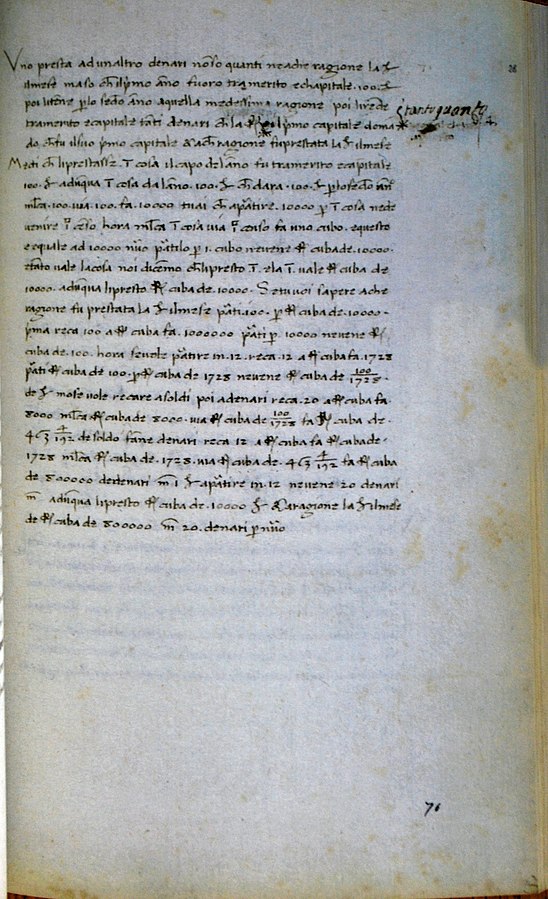 38
Uno presta ad unaltro denari nõ so quanti ne ache ragione la £
ilmese ma so ch̃ ilp̃mo ãno fuoro tra merito e chapitale .100. £
poi litẽne p̱ lo sedo ãno aquella medessima ragione poi li rede
tra merito e capitale tãti denari ch̃ la ilp̃mo capitale domã
è tanto quanto
do ch̃ fu il suo p̃mo capitale & ach̃ ragione fu prestata la £ ilmese
Metti ch̃ li prestasse 1̄ cosa il capo de lãno fu tra merito e capitale
100. £ adũqua 1̄ cosa da lãno .100. £ ch̃ dara .100. £ p̱ lo sedo ãno
ml̃ca .100. uia .100. fa .10000 tu ai ch̃ a p̃atire .10000 p̱ 1̄ cosa ne de
uenire 1̄ cẽso hora ml̃ca 1̄ cosa uia 1̄ cẽnso fa uno cubo. e questo
e equale ad 10000 nũo p̃atilo p̱ 1. cubo ne uene ℞ cuba de .10000.
e tãto uale la cosa noi dicẽmo ch̃ li presto 1̄. e la 1̄. uale ℞ cuba de
10000. adũqua li presto ℞ cuba de .10000. Se tu uoi sapere a che
ragione fu prestata la £ ilmese p̃ati .100. p̱ ℞ cuba de .10000.
p̃ma reca 100 a ℞ cuba fa. 1000000 p̃ati p̱. 10000 ne uene ℞
cuba de .100. hora se uole p̃atire in .12. reca .12 a ℞ cuba fa .1728
p̃ati ℞ cuba de 100. p̱ ℞ cuba de 1728 ne uene ℞ cuba de 100/1728.
de £ mo se uole recare a soldi poi a denari reca .20 a ℞ cuba fa
8000 ml̃ca ℞ cuba de 8000. uia ℞ cuba de 100/1728 fa ℞ cuba de.
463 4/192 de soldo fãne denari reca 12 a ℞ cuba fa ℞ cuba de.
1728 ml̃ca ℞ cuba de .1728. uia ℞ cuba de. 463 4/192 fa ℞ cuba
de 800000 de denari m̃ 1 £ a p̃atire in .12 ne uene 20 denari
m̃ adũqua li presto ℞ cuba de .10000 £ & a ragione la £ ilmese
de ℞ cuba de 800000 m̃ 20. denari p̱ nũo
76